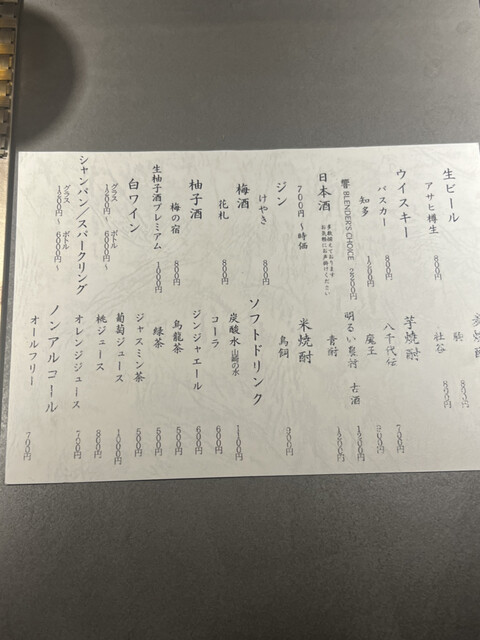 生ビール
アサヒ樽生 800円
ウイスキー
バスカー 800円
知多 1200円
響 BLENDER'S CHOICE 2500円
日本酒
多数揃えております
お気軽にお声掛けください
700円〜時価
ジン
けやき 800円
梅酒
花札 800円
柚子酒
梅の宿 800円
生柚子酒プレミアム 1000円
白ワイン
グラス ボトル
1200円〜 6000円〜
シャンパン/スパークリング
グラス ボトル
1200円〜 6000円〜
麦焼酎
800円
800円
芋焼酎
八千代伝 700円
魔王 900円
明るい農村 古酒 1200円
青酎 1200円
米焼酎
鳥飼 900円
ソフトドリンク
炭酸水 山崎の水 1100円
コーラ 600円
ジンジャエール 600円
烏龍茶 500円
緑茶 500円
ジャスミン茶 500円
葡萄ジュース 1000円
桃ジュース 800円
オレンジジュース 700円
ノンアルコール
オールフリー 700円